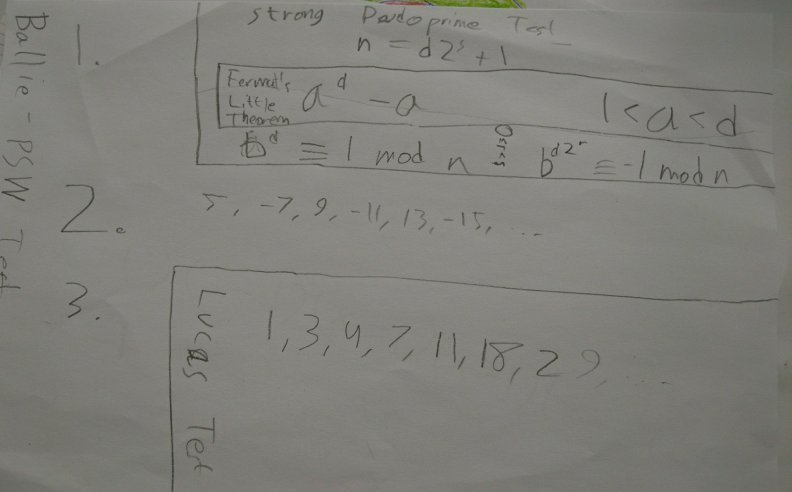 Ballie-PSW Test
1.
strong Psudoprime Test
n = d2^s + 1
Fermat's Little Theorem
a^d - a 1 < a < d
b^d ≡ 1 mod n 0≤r<s b^d2^r ≡ -1 mod n
2.
5, -7, 9, -11, 13, -15, ...
3.
Lucas Test
1, 3, 4, 7, 11, 18, 29, ...